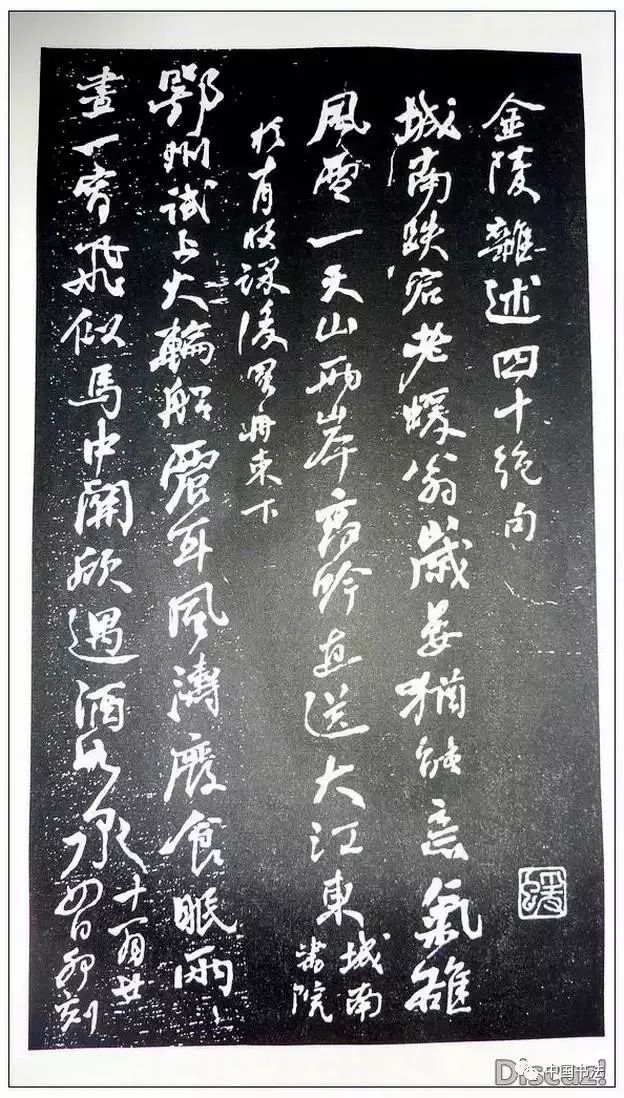 金陵雜述四十絕句
城南跌宕老蝯翁歲晏猶能意氣雄
風雪一天山兩岸高吟直送大江東
城南
書院
課後買舟東下
鄂州試上火輪船震耳風濤廢食眠兩
晝一宵飛似馬中間欣遇酒如泉
十一月廿
四日卯刻
Discuz!
中国书法